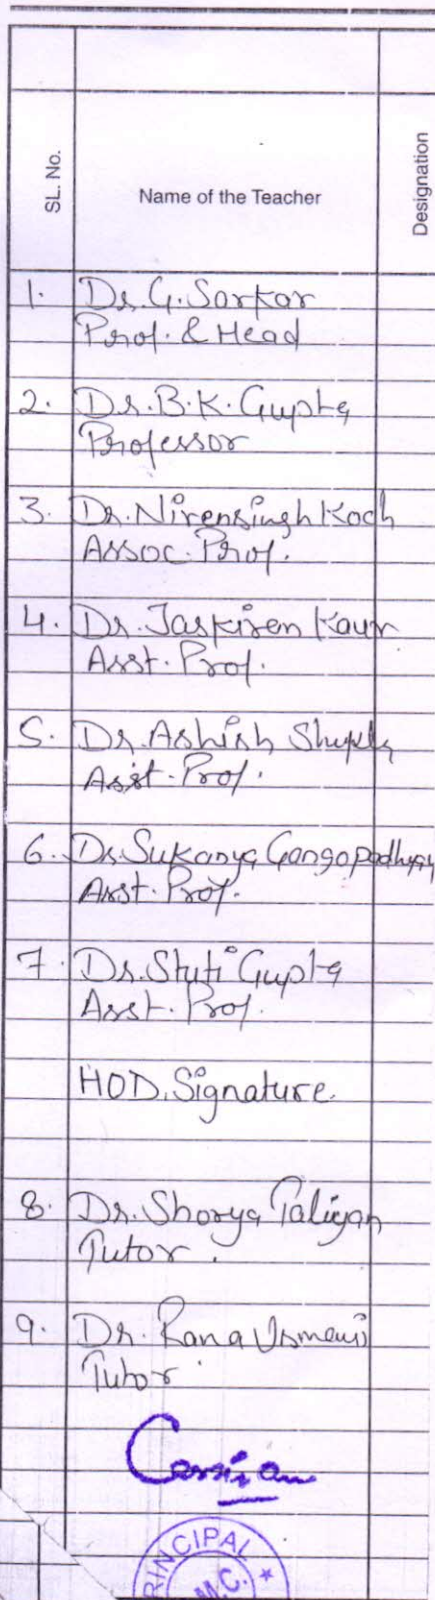 SL. No.
Name of the Teacher
Designation
1. Dr. G. Sarkar
Prof. & Head
2. Dr. B.K. Gupta
Professor
3. Dr. Nirensingh Koch
Assoc. Prof.
4. Dr. Jaskiren Kaur
Asst. Prof.
5. Dr. Ashish Shukla
Asst. Prof.
6. Dr. Sukanya Gangopadhyay
Asst. Prof.
7. Dr. Stuti Gupta
Asst. Prof.
HOD. Signature.
8. Dr. Shorya Taliyan
Tutor.
9. Dr. Rana Usmani
Tutor
RINCIPAL
M.C.